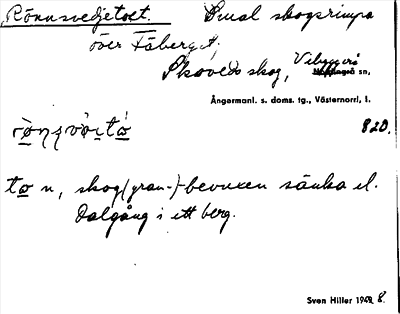 Rönnsvedjetoet. Smal skogsrimpa
över Fäberget;
Skoveds skog, Vibyggerå sn,
Ångermanl. s. doms. tg., Västernorrl. l.
820.
to n, skog(gran-)-bevuxen sänka el.
dalgång i ett berg.
Sven Hiller 1948. 8.